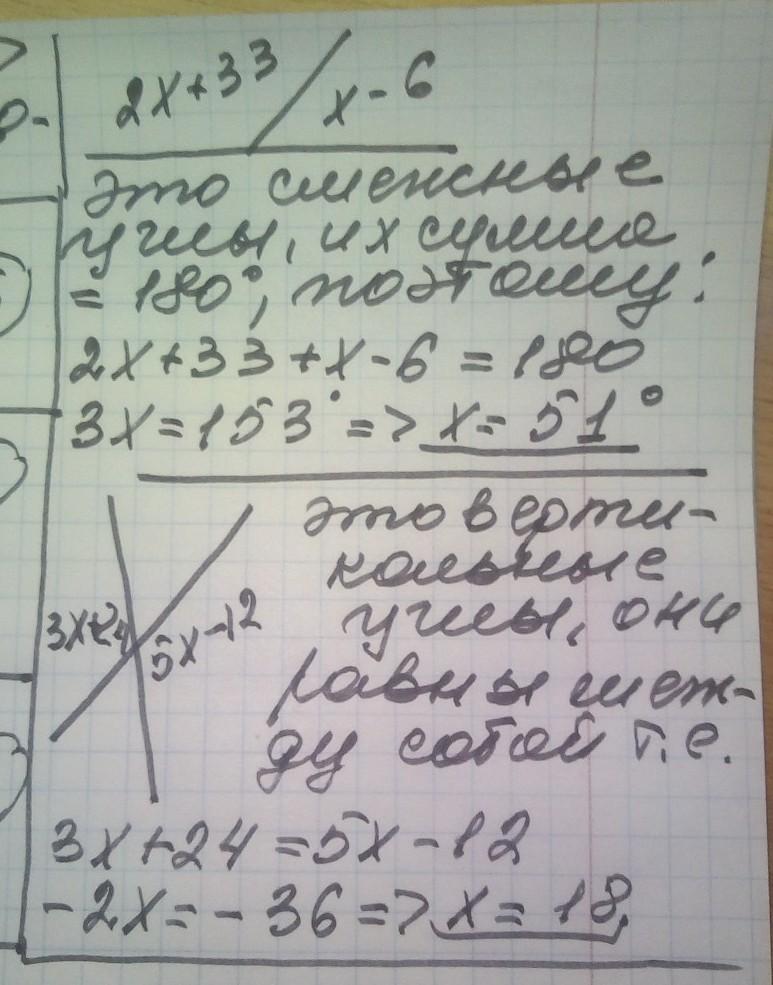 2x+33 x-6
это смежные
углы, их сумма
= 180°, поэтому:
2x+33+x-6=180
3x=153° => x=51°
это верти-
кальные
3x+24 5x-12
углы, они
равны меж-
ду собой т.е.
3x+24=5x-12
-2x=-36=> x=18,